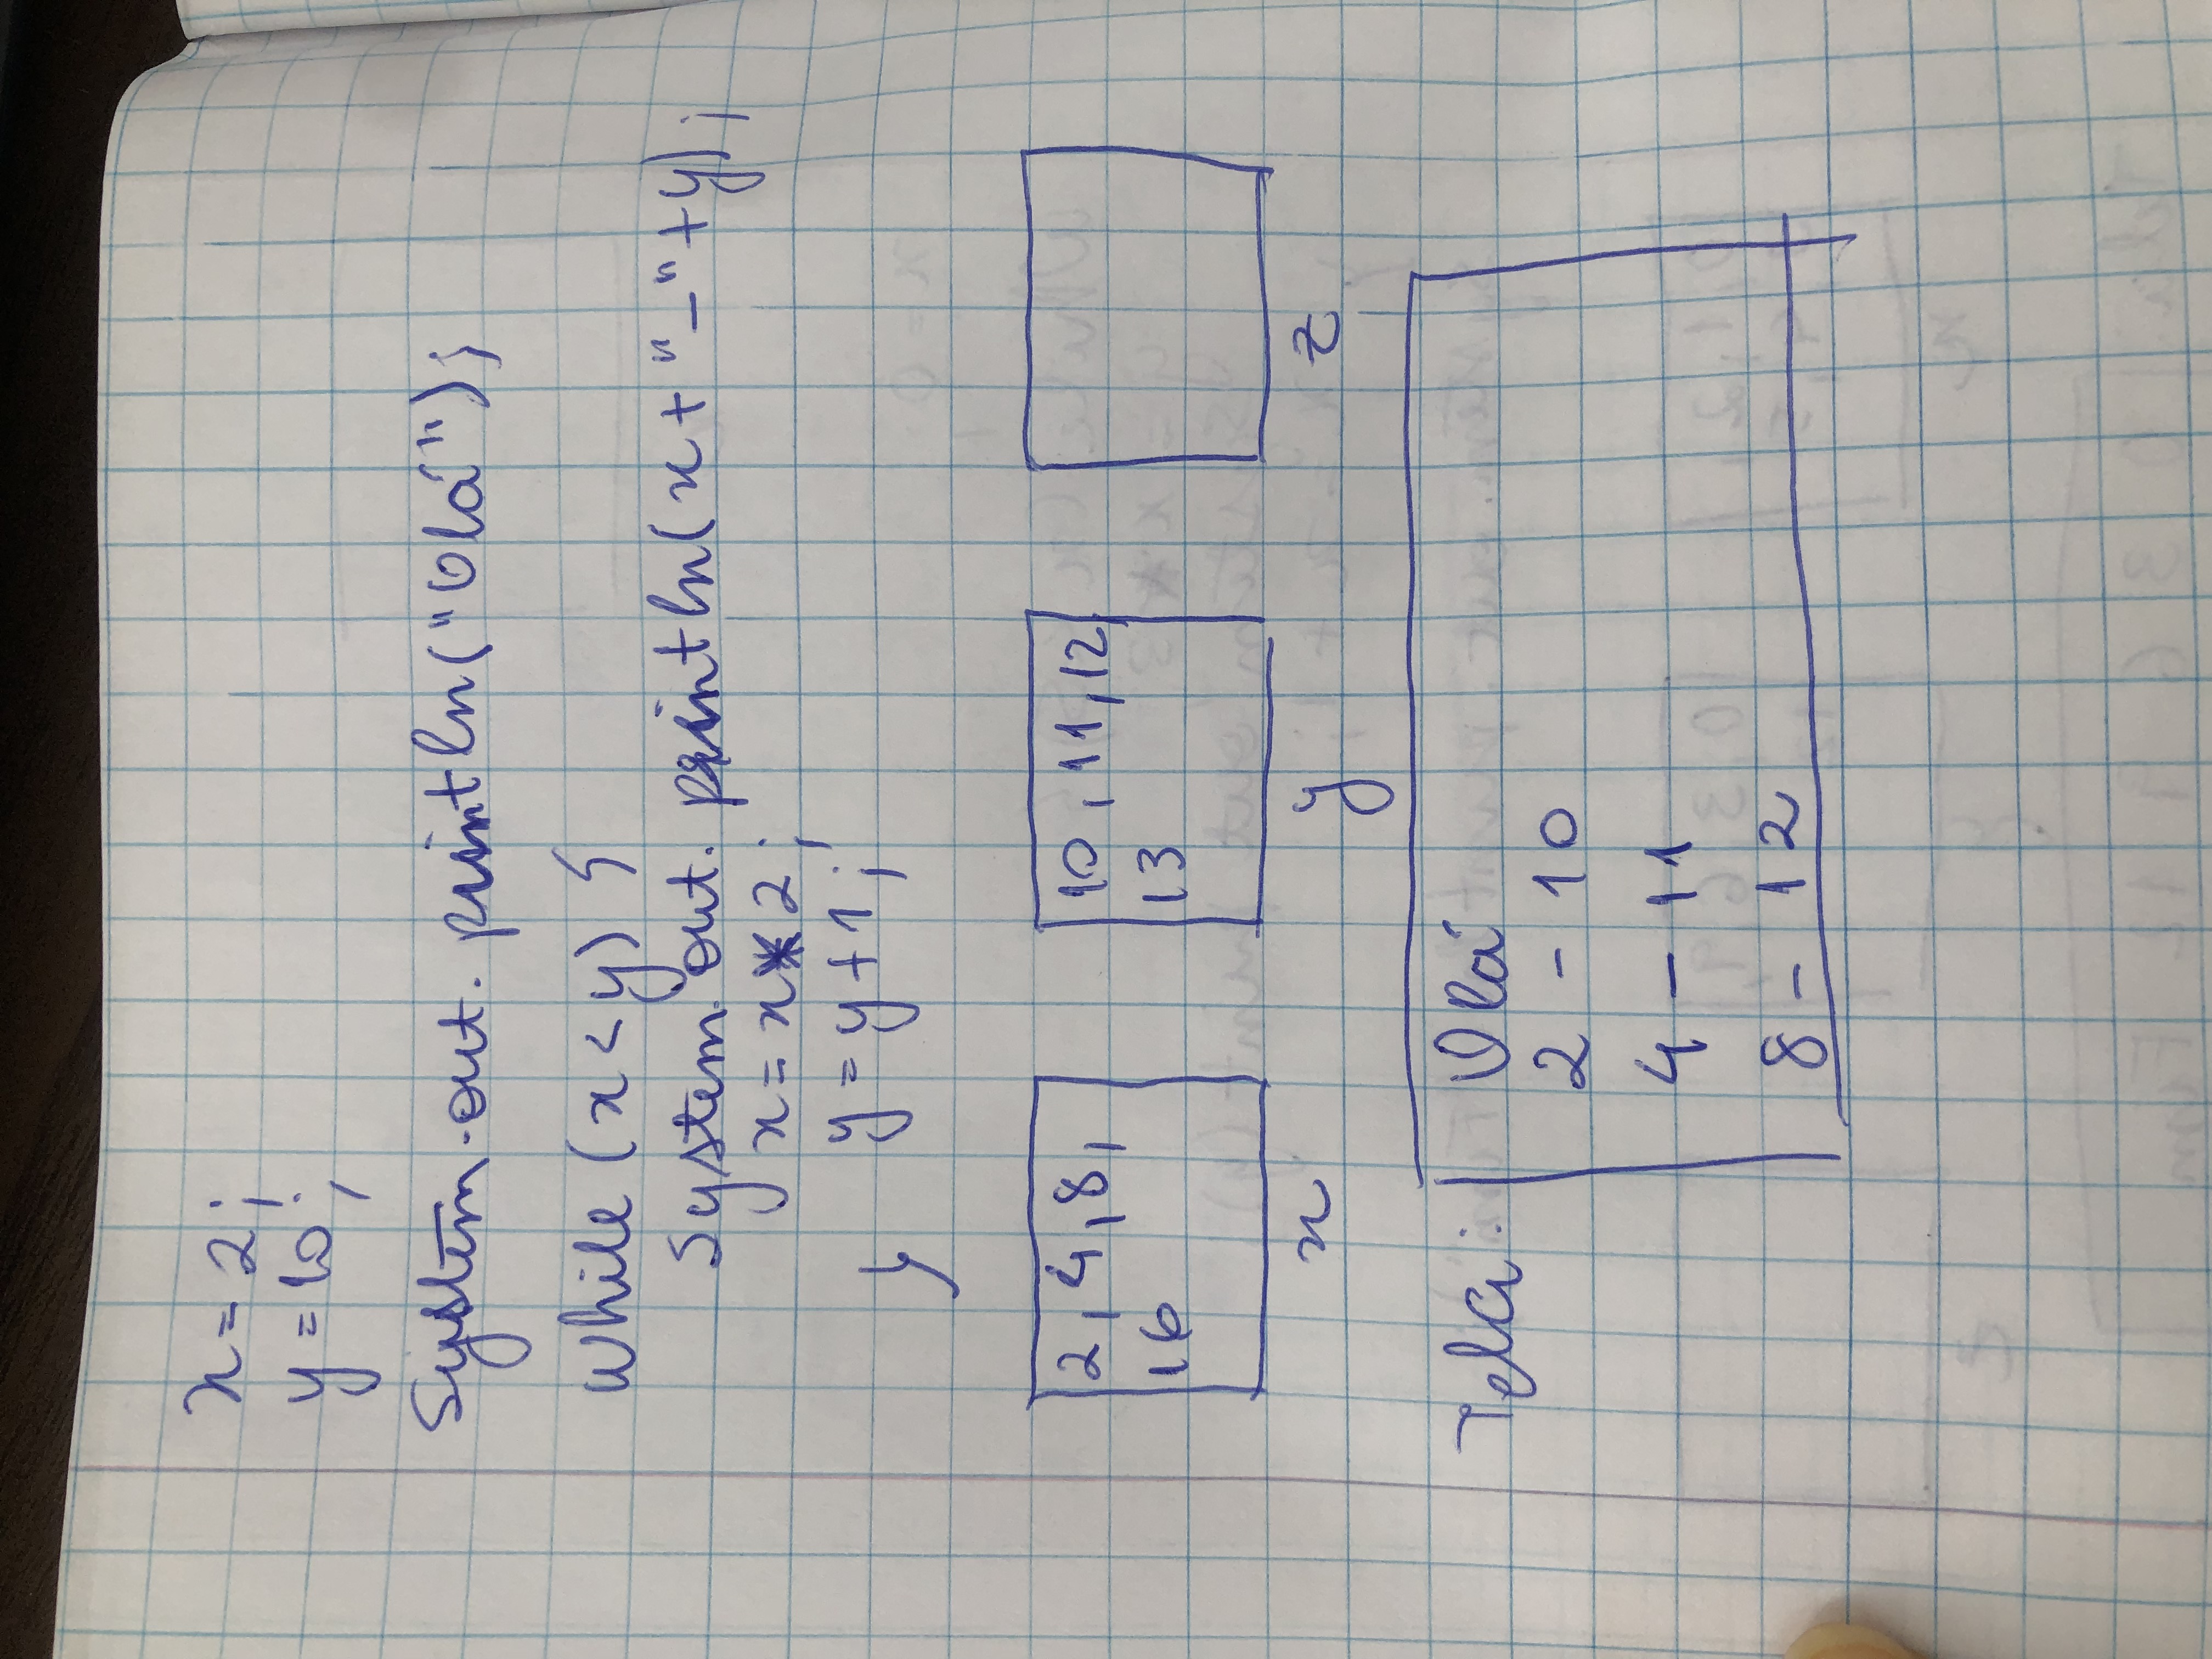 x = 2;
y = 10;
System.out.println("Olá");
while (x < y) {
System.out.println(x + "-" + y);
x = x * 2;
y = y + 1;
}
2, 4, 8,
16
10, 11, 12,
13
x
y
z
Tela:
Olá
2 - 10
4 - 11
8 - 12